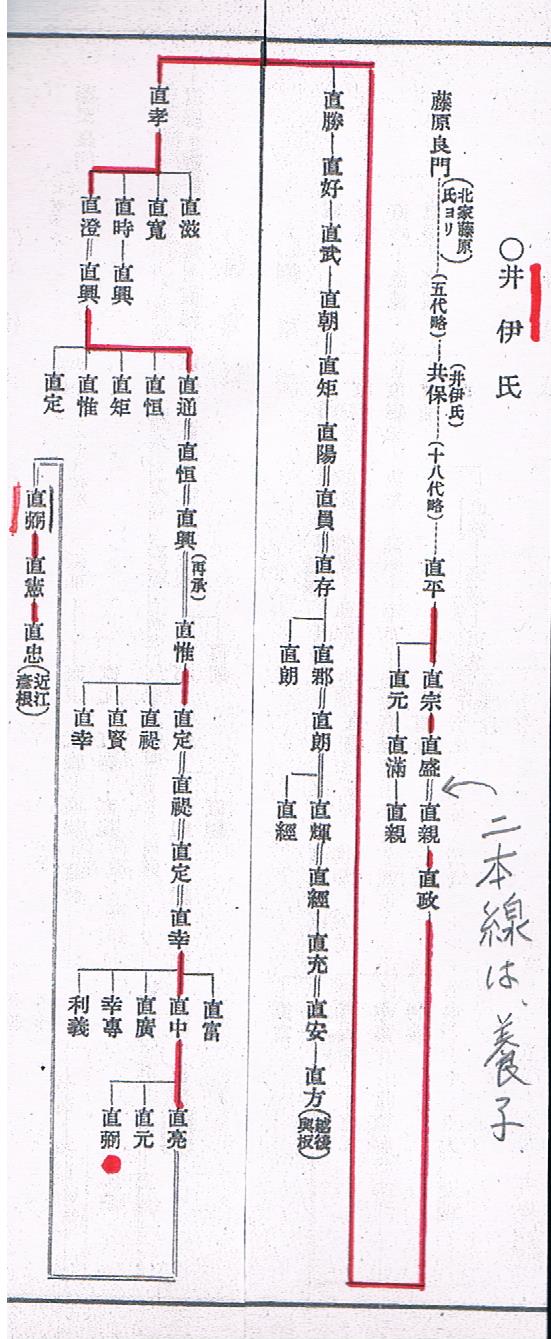 ○井伊氏
藤原良門
(北家藤原氏ヨリ)
(五代略)
共保
(井伊氏)
(十八代略)
直平
直宗
直盛
直親
直政
直元
直満
直親
二本線は、養子
直勝
直好
直武
直朝
直矩
直陽
直員
直存
直郡
直朗
直輝
直經
直充
直安
直方
(越後與板)
直朗
直經
直孝
直滋
直寬
直時
直興
直澄
直興
直通
直恒
直興
(再承)
直惟
直定
直禔
直定
直幸
直恒
直矩
直惟
直定
直禔
直賢
直幸
直富
直中
直廣
幸專
利義
直亮
直元
直弼
直弼
直憲
直忠
(近江彦根)